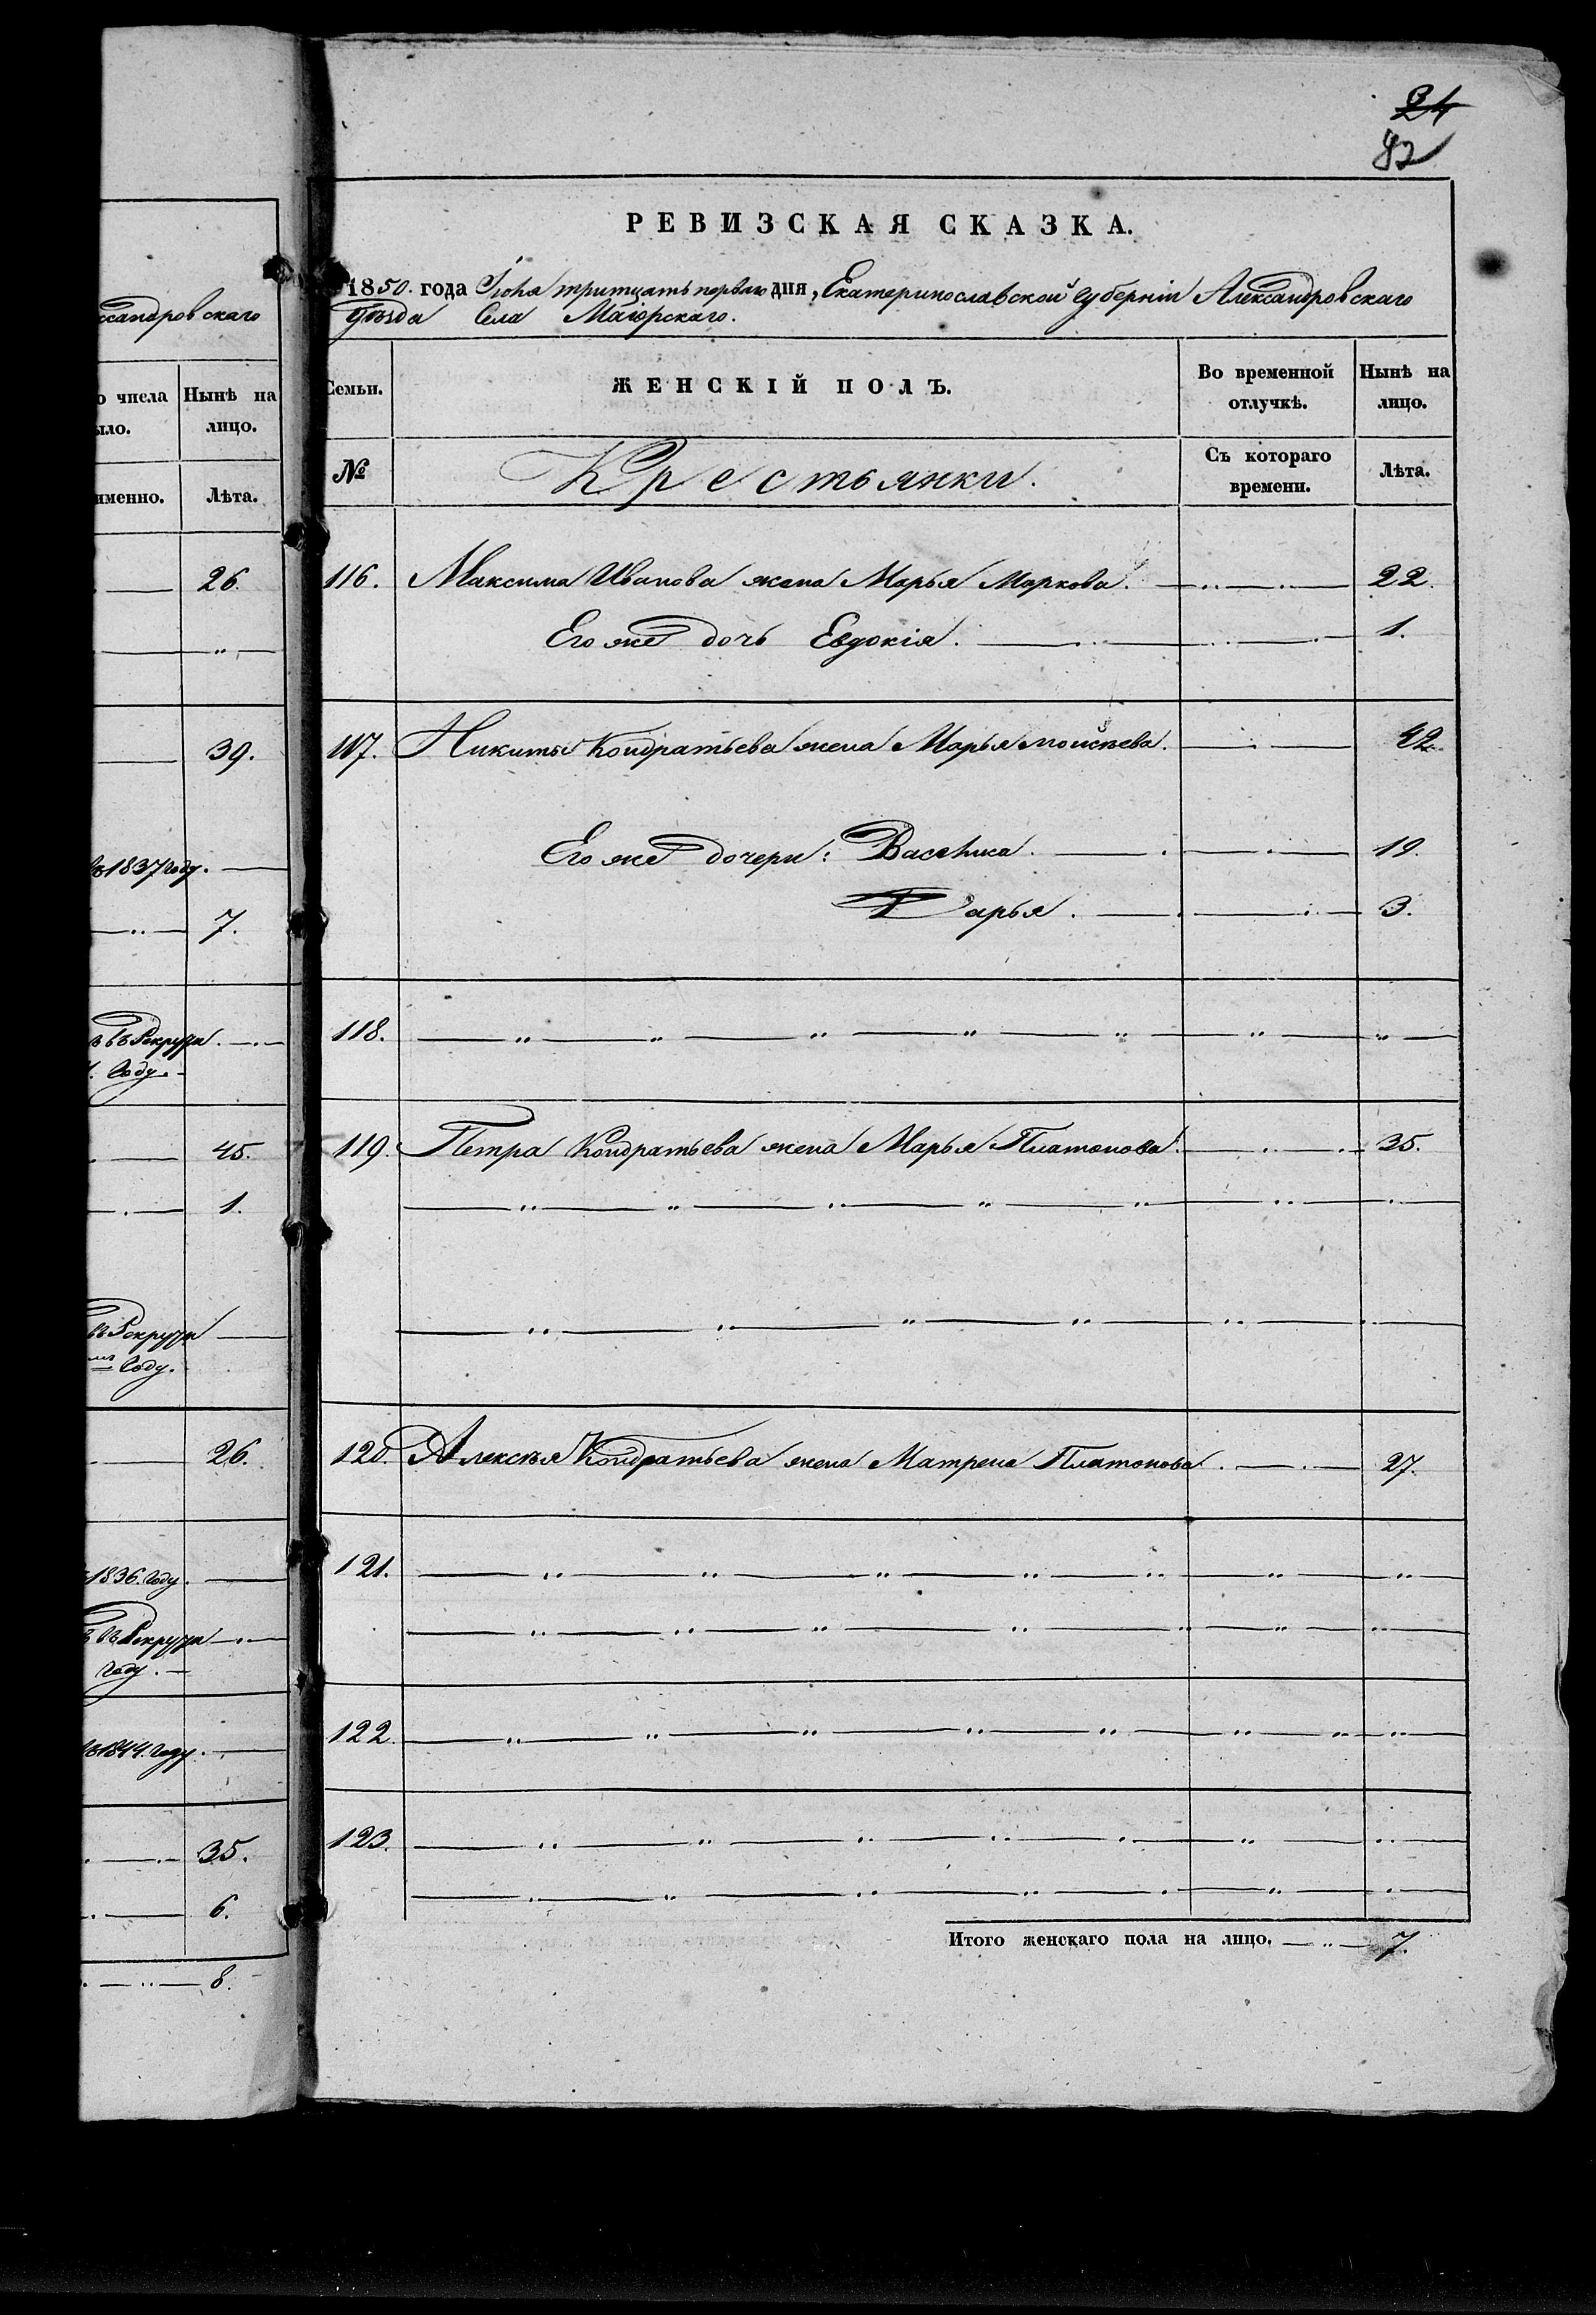 24
82
ксандровскаго
о числа Нынѣ на
ыло. лицо.
именно. Лѣта.
26.
39.
въ 1837 году.
7.
въ Рекруты
году.
45.
1.
въ Рекруты
году.
26.
1836. году.
въ Рекруты
году.
1844. году.
35.
6.
8.
РЕВИЗСКАЯ СКАЗКА.
1850. года тритцать перваго дня, Екатеринославской губерніи Александровскаго
Уѣзда Села Маіорскаго.
Семьи. ЖЕНСКІЙ ПОЛЪ. Во временной отлучкѣ. Нынѣ на лицо.
№ Крестьянки. Съ котораго времени. Лѣта.
116. Максима Иванова жена Марья Маркова. 22.
Его же дочь Евдокія. 1.
117. Никиты Кондратьева жена Марья Моисѣева. 42
Его же дочери: Василиса. 19.
Дарья. 3.
118.
119. Петра Кондратьева жена Марья Платонова. 35.
120. Алексѣя Кондратьева жена Матрена Платонова. 27.
121.
122.
123.
Итого женскаго пола на лицо. 7.